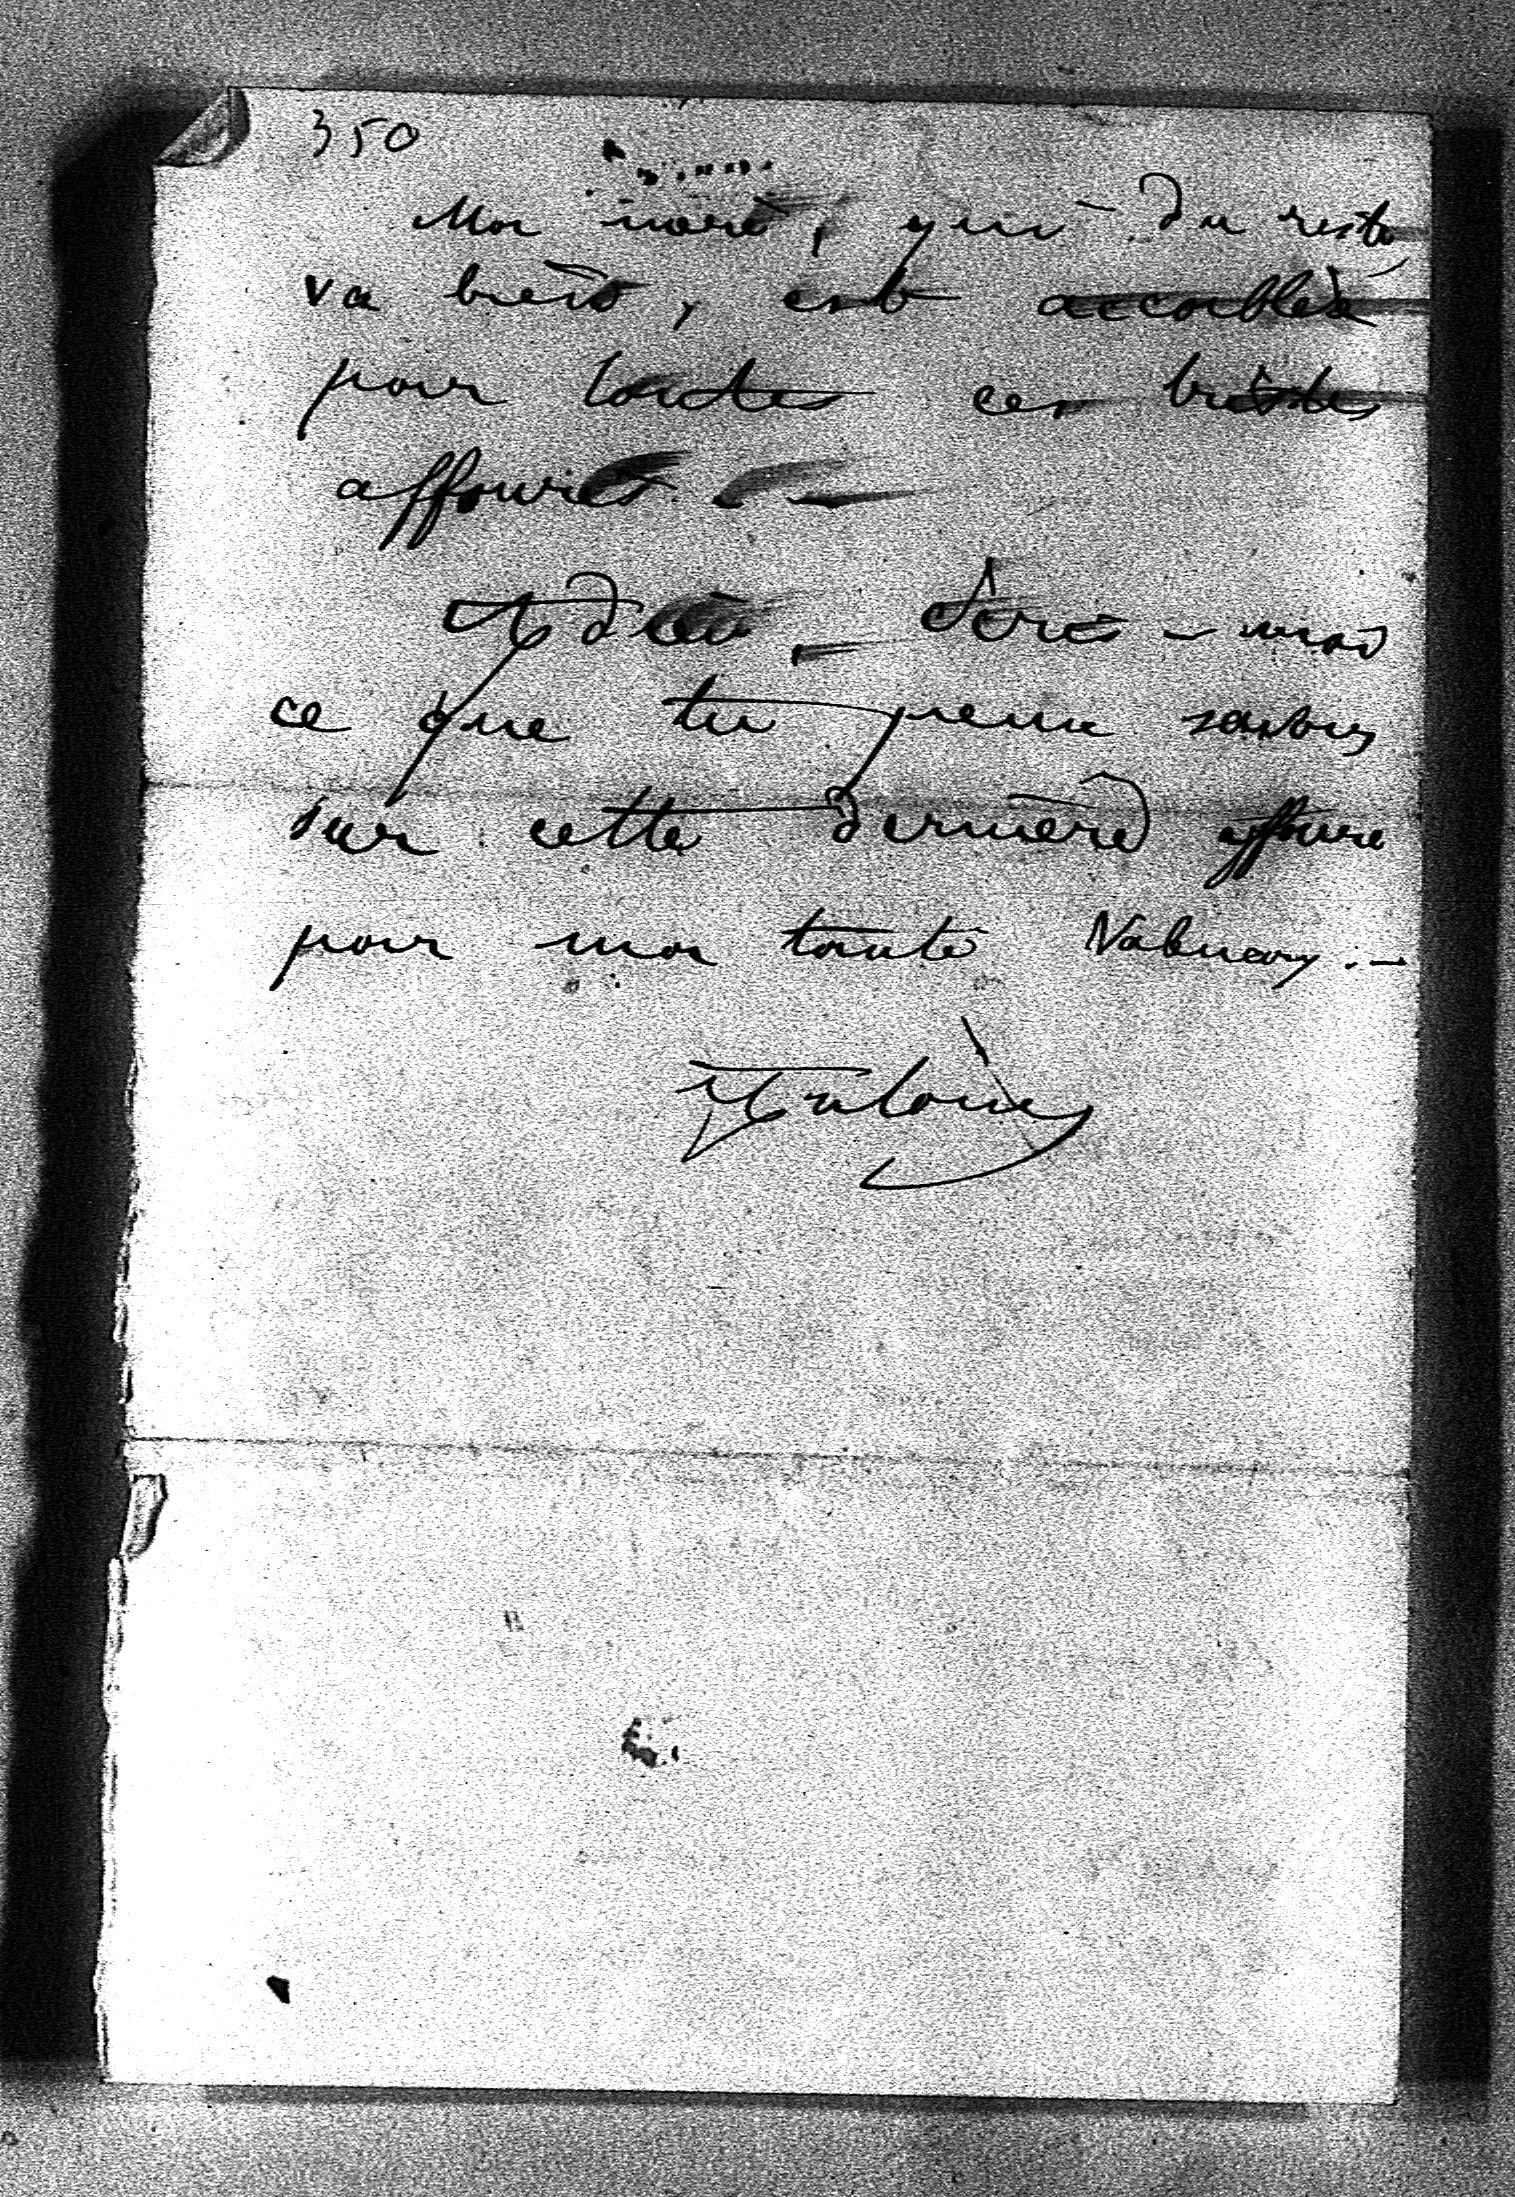 350
Ma mère, qui du reste
va bien, est accablée
pour toutes ces tristes
affaires. —
Adieu — Écris-moi
ce que tu peux savoir
sur cette dernière affaire
pour ma tante Nabuary. —
Antoine